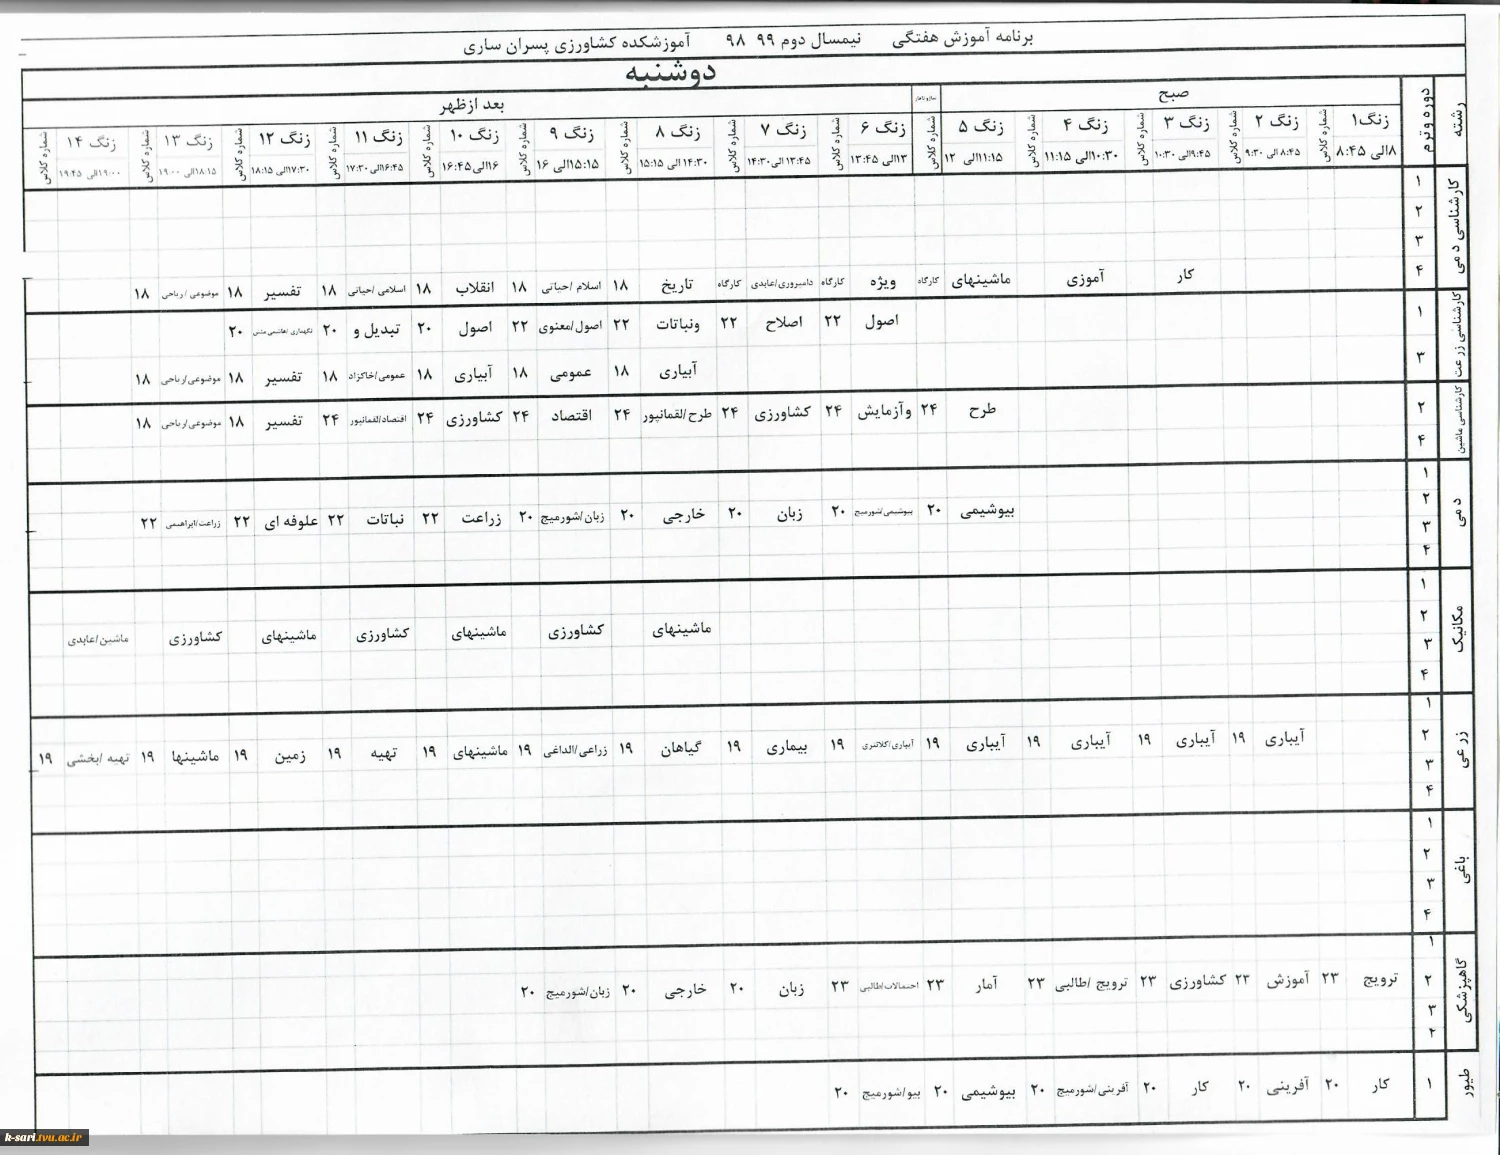 برنامه آموزش هفتگی نیمسال دوم ۹۹ ۹۸ آموزشکده کشاورزی پسران ساری
دوشنبه
رشته دوره و ترم صبح بعد ازظهر
زنگ۱ شماره کلاس زنگ ۲ شماره کلاس زنگ ۳ شماره کلاس زنگ ۴ شماره کلاس زنگ ۵ شماره کلاس زنگ ۶ شماره کلاس زنگ ۷ شماره کلاس زنگ ۸ شماره کلاس زنگ ۹ شماره کلاس زنگ ۱۰ شماره کلاس زنگ ۱۱ شماره کلاس زنگ ۱۲ شماره کلاس زنگ ۱۳ شماره کلاس زنگ ۱۴ شماره کلاس
۸الی ۸:۴۵ ۸:۴۵ الی ۹:۳۰ ۹:۴۵الی ۱۰:۳۰ ۱۰:۳۰الی ۱۱:۱۵ ۱۱:۱۵الی ۱۲ ۱۳الی ۱۳:۴۵ ۱۳:۴۵ الی ۱۴:۳۰ ۱۴:۳۰ الی ۱۵:۱۵ ۱۵:۱۵الی ۱۶ ۱۶الی ۱۶:۴۵ ۱۶:۴۵الی ۱۷:۳۰ ۱۷:۳۰الی ۱۸:۱۵ ۱۸:۱۵الی ۱۹:۰۰ ۱۹:۰۰الی ۱۹:۴۵
کارشناسی د می
۱
۲
۳
۴ کار آموزی ماشینهای کارگاه ویژه کارگاه دامپروری/عابدی کارگاه تاریخ ۱۸ اسلام /حیاتی ۱۸ انقلاب ۱۸ اسلامی /حیاتی ۱۸ تفسیر ۱۸ موضوعی /ریاحی ۱۸
کارشناسی زر عت
۱ اصول ۲۲ اصلاح ۲۲ ونباتات ۲۲ اصول/معنوی ۲۲ اصول ۲۰ تبدیل و ۲۰ ۲۰
۳ آبیاری ۱۸ عمومی ۱۸ آبیاری ۱۸ عمومی/خاکزاد ۱۸ تفسیر ۱۸ موضوعی/ریاحی ۱۸
کارشناسی ماشین
۲ طرح ۲۴ وآزمایش ۲۴ کشاورزی ۲۴ طرح/لقمانپور ۲۴ اقتصاد ۲۴ کشاورزی ۲۴ اقتصاد/لقمانپور ۲۴ تفسیر ۱۸ موضوعی/ریاحی ۱۸
۴
د می
۱
۲ بیوشیمی ۲۰ بیوشیمی/شورمیج ۲۰ زبان ۲۰ خارجی ۲۰ زبان/شورمیج ۲۰ زراعت ۲۲ نباتات ۲۲ علوفه ای ۲۲ زراعت/ابراهیمی ۲۲
۳
۴
مکانیک
۱
۲ ماشینهای کشاورزی ماشینهای کشاورزی ماشینهای کشاورزی ماشین/عابدی
۳
۴
زر عی
۱
۲ آیباری ۱۹ آیباری ۱۹ آیباری ۱۹ آیباری ۱۹ آبیاری/کلانتری ۱۹ بیماری ۱۹ گیاهان ۱۹ زراعی/الداغی ۱۹ ماشینهای ۱۹ تهیه ۱۹ زمین ۱۹ ماشینها ۱۹ تهیه /بخشی ۱۹
۳
۴
باغی
۱
۲
۳
۴
گاهپزشکی
۱
۲ ترویج ۲۳ آموزش ۲۳ کشاورزی ۲۳ ترویج /طالبی ۲۳ آمار ۲۳ احتمالات/طالبی ۲۳ زبان ۲۰ خارجی ۲۰ زبان/شورمیج ۲۰
۳
۲
طیور
۱ کار ۲۰ آفرینی ۲۰ کار ۲۰ آفرینی/شورمیج ۲۰ بیوشیمی ۲۰ بیو/شورمیج ۲۰
k-sari.tvu.ac.ir